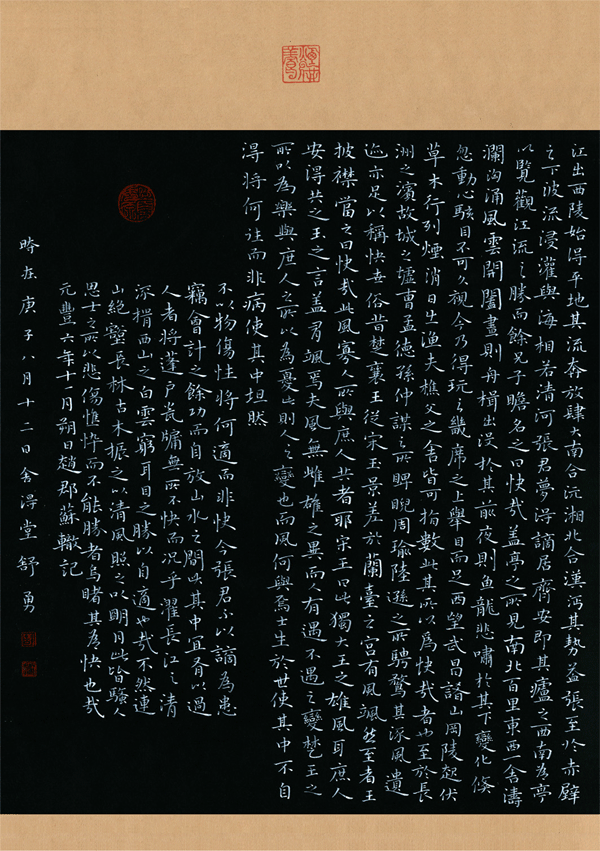 江出西陵始得平地其流奔放肆大南合沅湘北合漢沔其勢益張至於赤壁
之下波流浸灌與海相若清河張君夢得謫居齊安即其廬之西南為亭
以覽觀江流之勝而餘兄子瞻名之曰快哉蓋亭之所見南北百里東西一舍濤
瀾洶涌風雲開闔晝則舟楫出沒於其前夜則魚龍悲嘯於其下變化倏
忽動心駭目不可久視今乃得玩之幾席之上舉目而足西望武昌諸山岡陵起伏
草木行列煙消日出漁夫樵父之舍皆可指數此其所以為快哉者也至於長
洲之濱故城之墟曹孟德孫仲謀之所睥睨周瑜陸遜之所騁騖其流風遺
迹亦足以稱快世俗昔楚襄王從宋玉景差於蘭臺之宮有風颯然至者王
披襟當之曰快哉此風寡人所與庶人共者耶宋玉曰此獨大王之雄風耳庶人
安得共之玉之言蓋有颯焉夫風無雌雄之異而人有遇不遇之變楚王之
所以為樂與庶人之所以為憂此則人之變也而風何與焉士生於世使其中不自
得將何往而非病使其中坦然
不以物傷性將何適而非快今張君不以謫為患
竊會計之餘功而自放山水之間此其中宜有以過
人者將蓬戶甕牖無所不快而況乎濯長江之清
流揖西山之白雲窮耳目之勝以自適也哉不然連
山絕壑長林古木振之以清風照之以明月此皆騷人
思士之所以悲傷憔悴而不能勝者烏睹其為快也哉
元豐六年十一月朔日趙郡蘇轍記
時在庚子八月十二日舍得堂舒勇